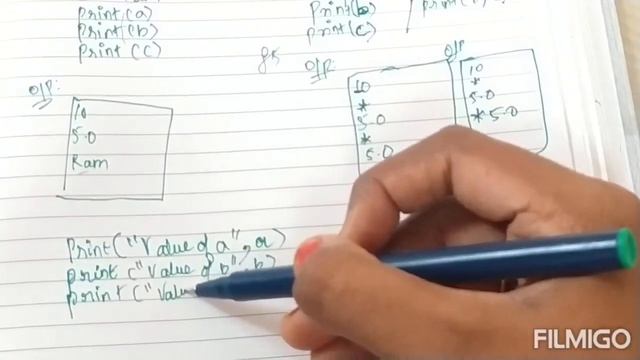 print(a)
print(b)
print(c)
print(b)
print(c)
O/P:
10
5.0
Ram
O/P:
10
*
5.0
*
5.0
O/P
10
*
5.0
*5.0
print("Value of a", a)
print("Value of b", b)
print("Valu
FILMIGO